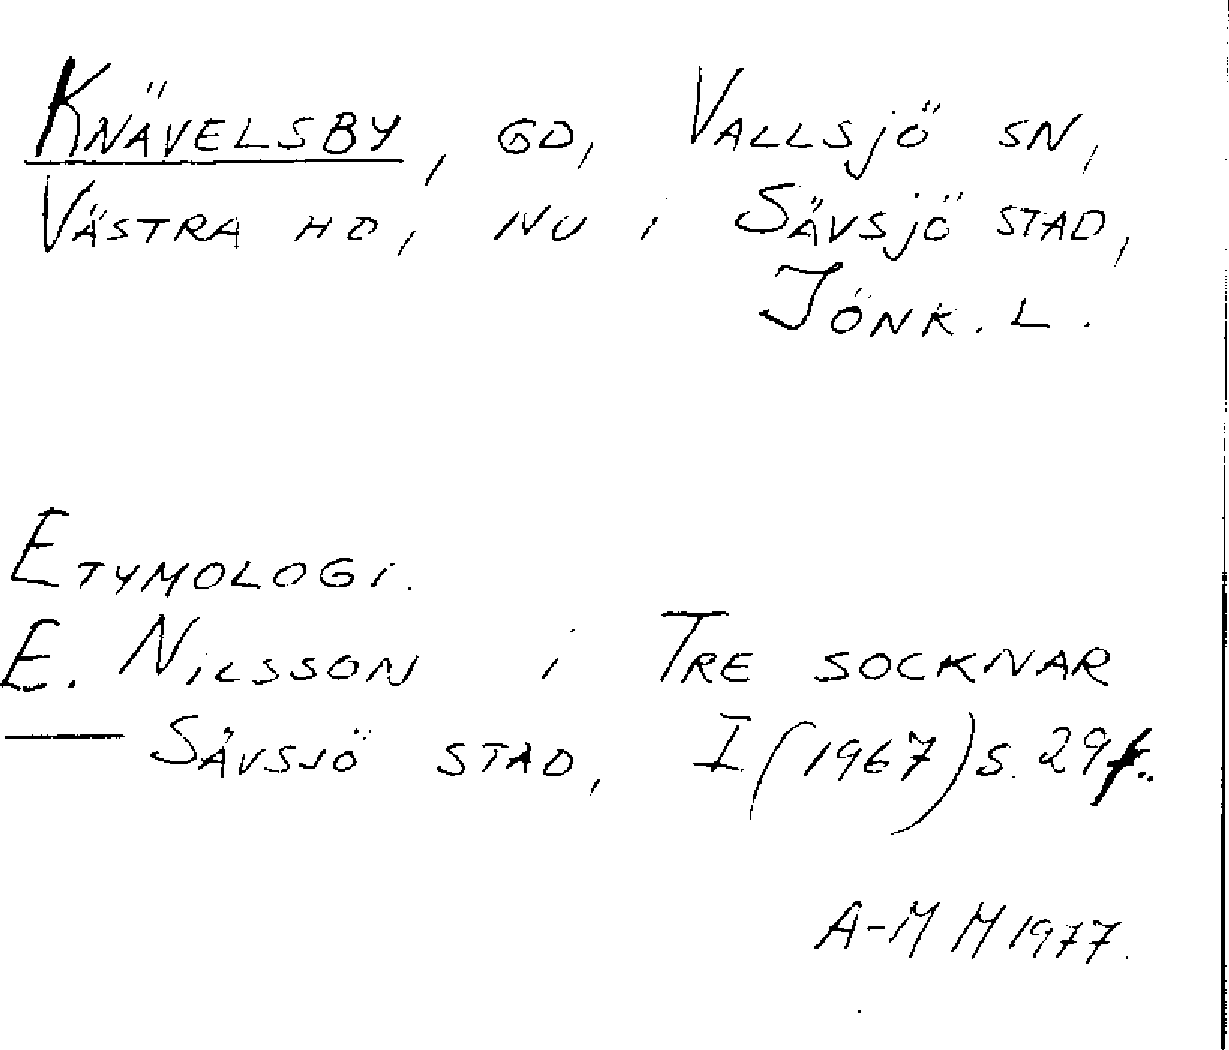 KNÄVELSBY, GD, VALLSJÖ SN,
VÄSTRA HD, NU I SÄVSJÖ STAD,
JÖNK. L.
ETYMOLOGI.
E. NILSSON i TRE SOCKNAR
— SÄVSJÖ STAD, I (1967) S. 29f..
A-M M 1977.